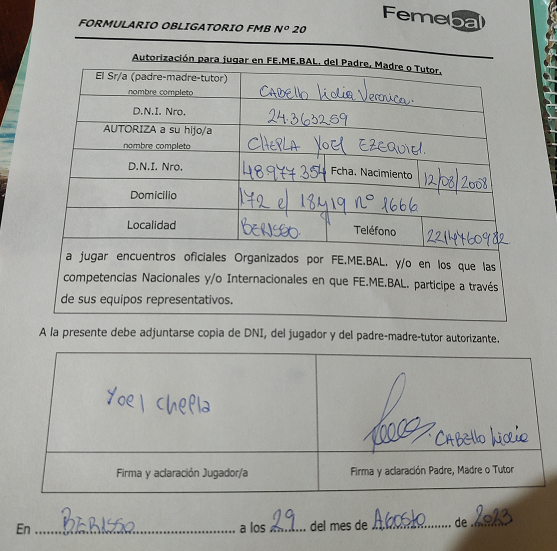 Femebal
FORMULARIO OBLIGATORIO FMB Nº 20
Autorización para jugar en FE.ME.BAL. del Padre, Madre o Tutor.
El Sr/a (padre-madre-tutor)
nombre completo
CABello Lidia Veronica.
D.N.I. Nro.
24.363259
AUTORIZA a su hijo/a
nombre completo
CHEPLA YOEL EZEQUIEL.
D.N.I. Nro.
48977354 Fcha. Nacimiento 12/08/2008
Domicilio
172 e/ 18y19 nº 1666
Localidad
BERISSO. Teléfono 2214760982
a jugar encuentros oficiales Organizados por FE.ME.BAL. y/o en los que las
competencias Nacionales y/o Internacionales en que FE.ME.BAL. participe a través
de sus equipos representativos.
A la presente debe adjuntarse copia de DNI, del jugador y del padre-madre-tutor autorizante.
Yoel Chepla
CABello Lidia
Firma y aclaración Jugador/a
Firma y aclaración Padre, Madre o Tutor
En BERISSO a los 29 del mes de Agosto de 2023